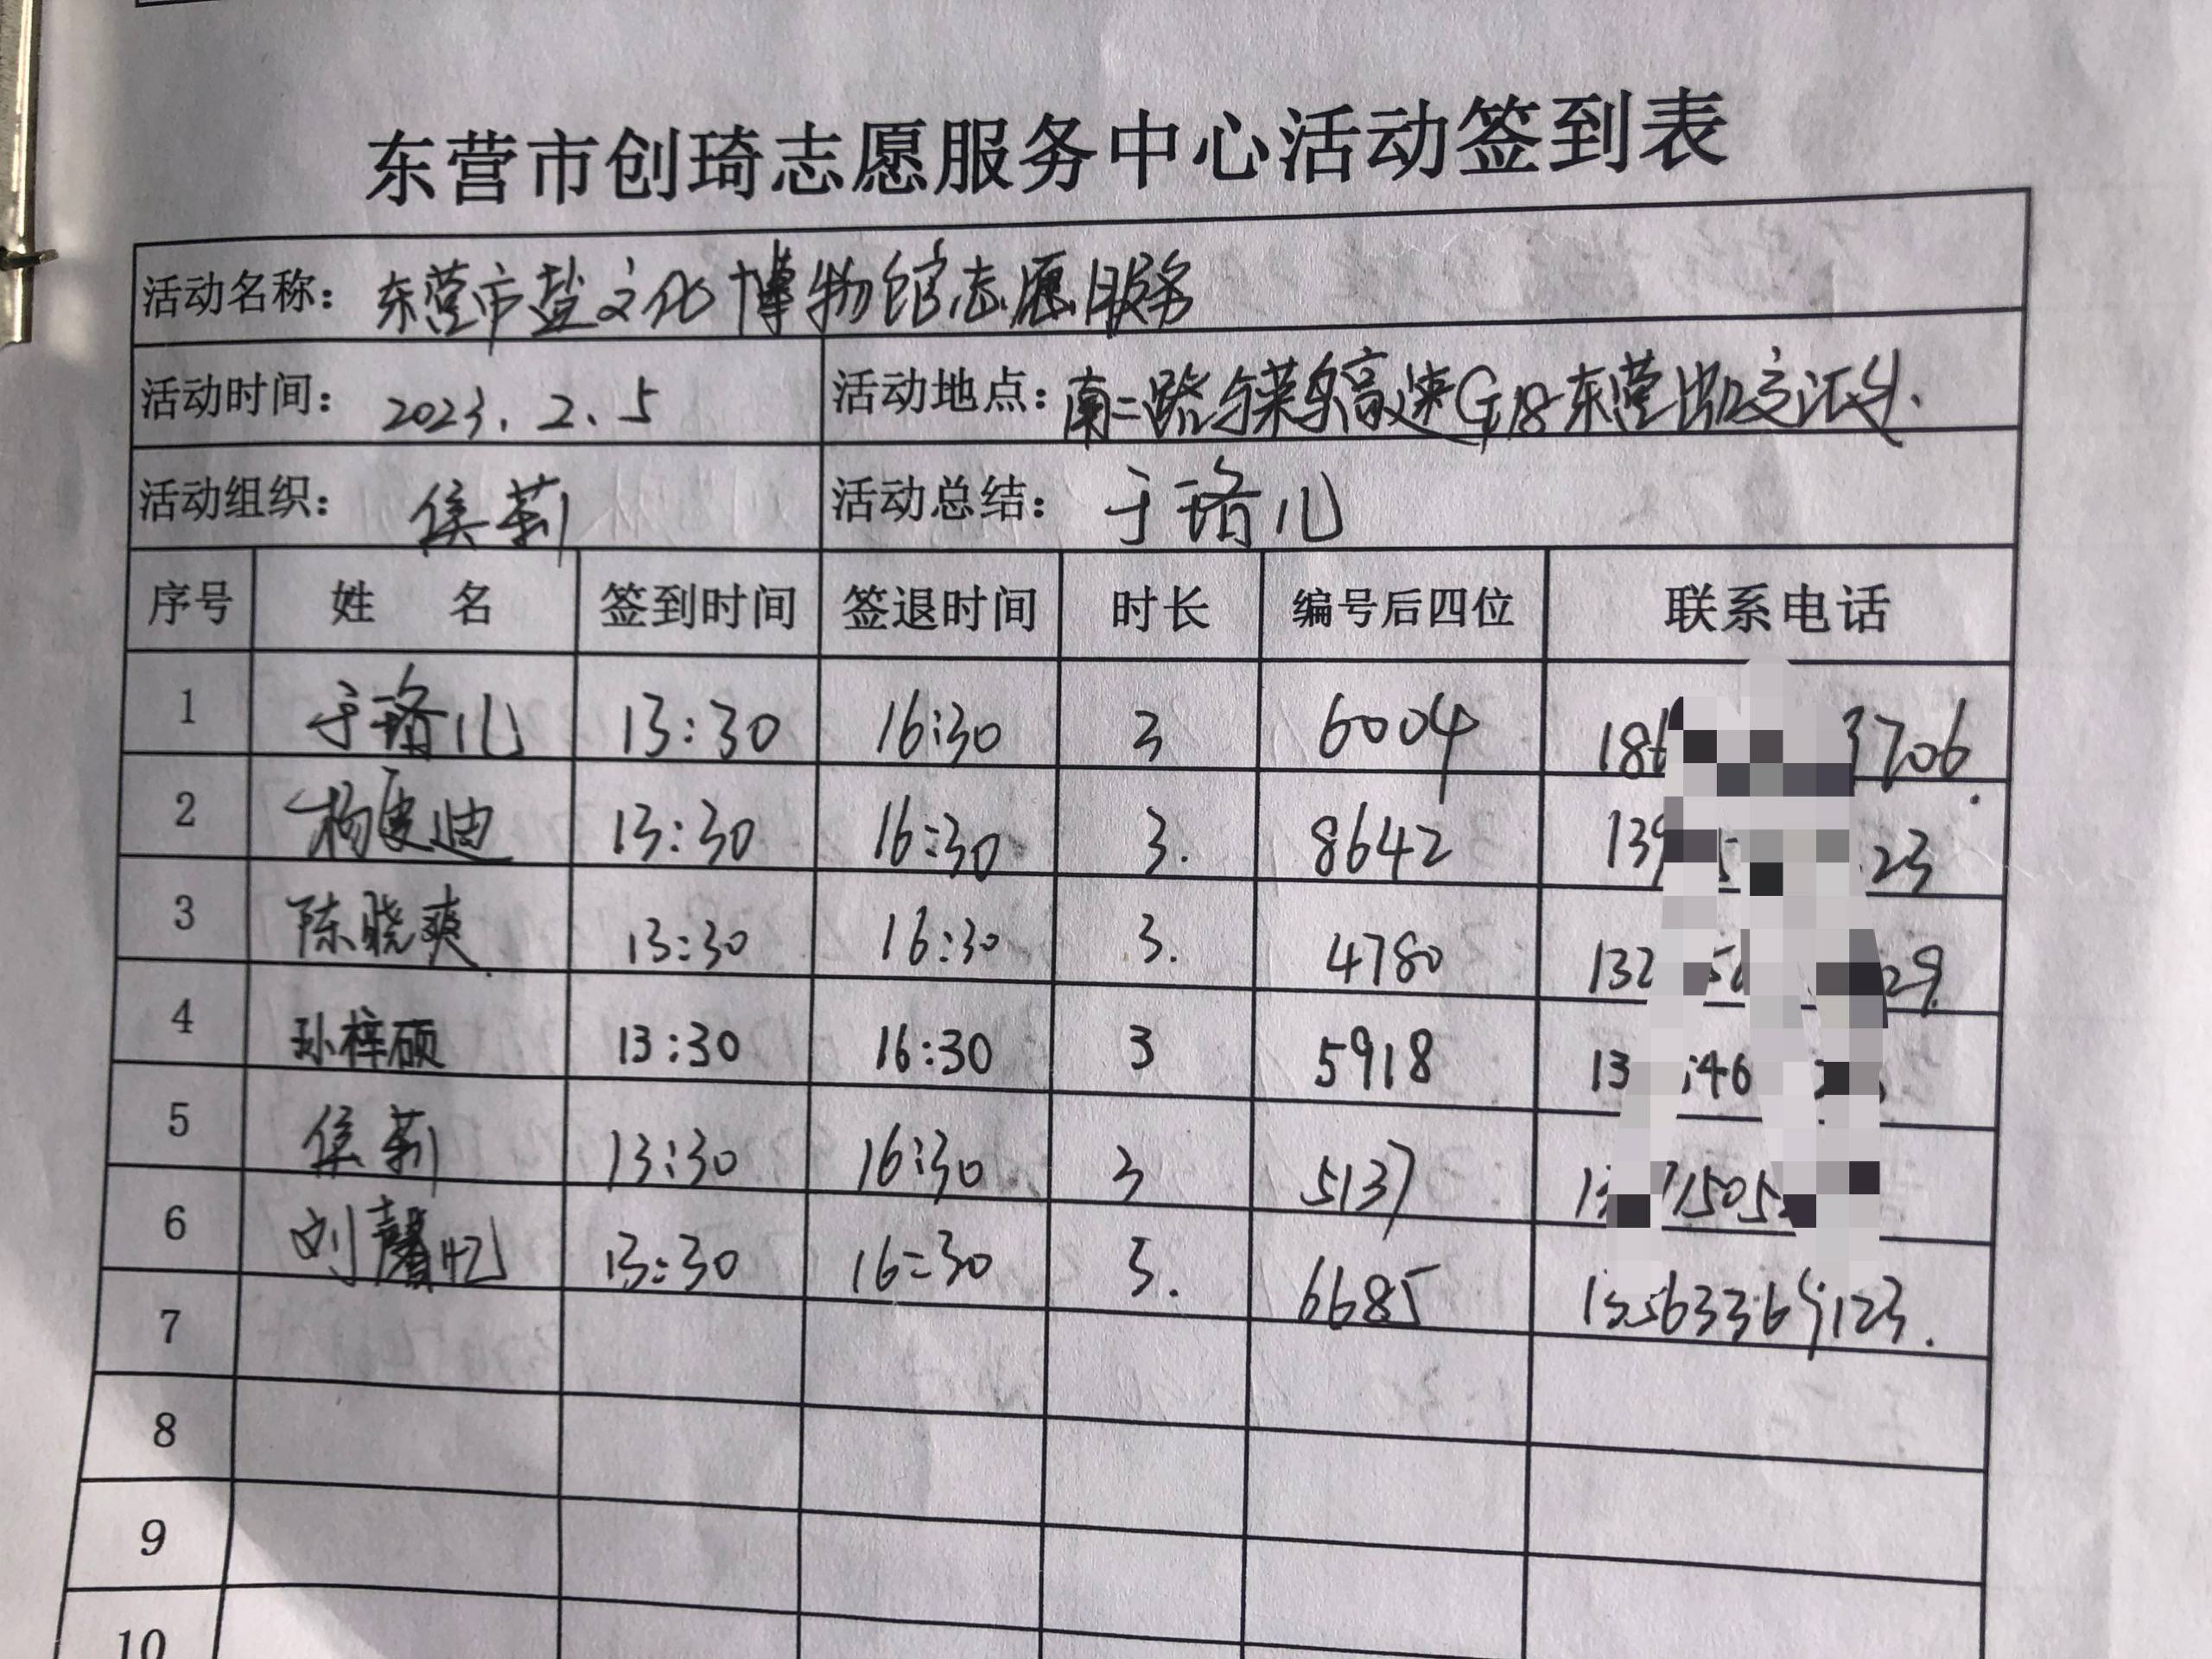 东营市创琦志愿服务中心活动签到表
活动名称： 东营市盐文化博物馆志愿服务
活动时间： 2023.2.5 活动地点： 南二路与荣乌高速G18东营出口交汇处.
活动组织： 侯莉 活动总结： 于珞儿
序号 姓 名 签到时间 签退时间 时长 编号后四位 联系电话
1 于珞儿 13:30 16:30 3 6004 186 3706.
2 杨更迪 13:30 16:30 3. 8642 139 23
3 陈晓爽. 13:30 16:30 3. 4780 132 29.
4 孙梓硕 13:30 16:30 3 5918 13 46
5 侯莉 13:30 16:30 3 5137 13 1505
6 刘馨忆 13:30 16:30 3. 6685
7
8
9
10